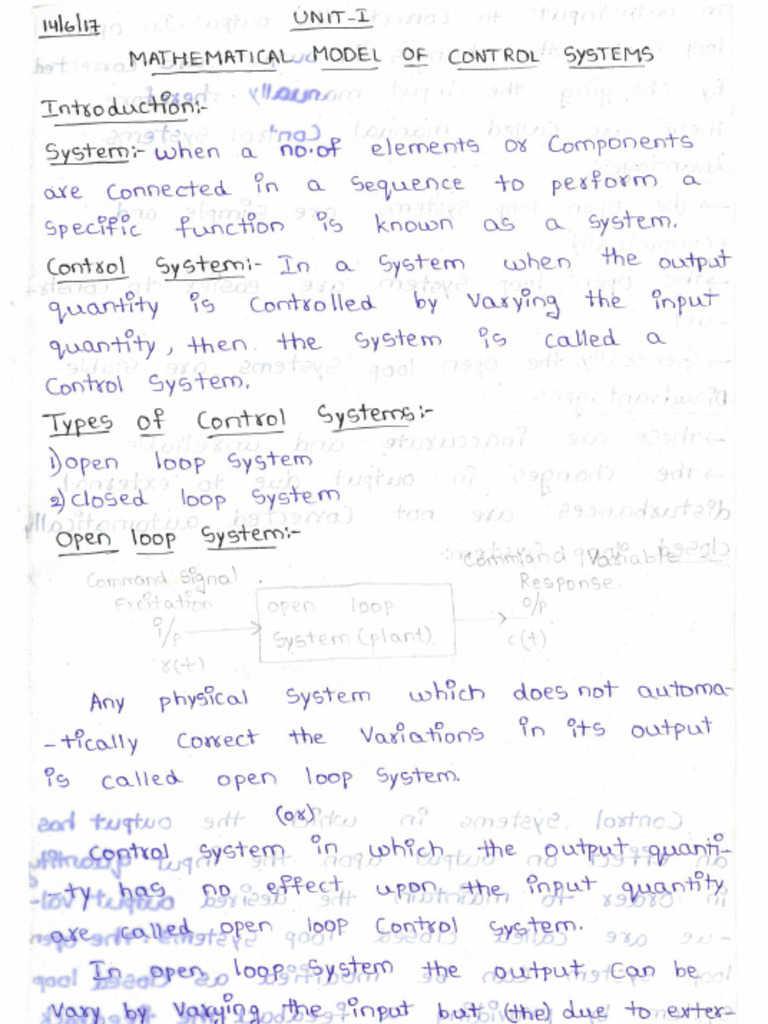 14/6/17
UNIT-I
MATHEMATICAL MODEL OF CONTROL SYSTEMS
Introduction:-
System:- when a no.of elements or Components
are connected in a sequence to perform a
specific function is known as a system.
Control System:- In a system when the output
quantity is controlled by varying the input
quantity, then the system is called a
control system.
Types of Control Systems:-
1) open loop system
2) closed loop system
Open loop System:-
Command signal
Excitation
i/p
r(t)
open loop
system (plant)
Command Variable
Response
o/p
c(t)
Any physical system which does not automa-
-tically correct the variations in its output
is called open loop system.
(or)
control system in which the output quanti-
-ty has no effect upon the input quantity
are called open loop control system.
In open loop system the output can be
vary by varying the input but (the) due to exter-